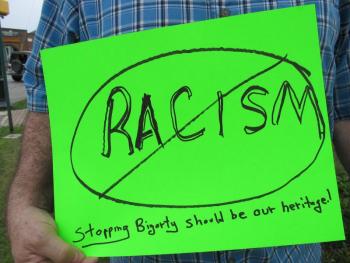 RACISM
Stopping Bigorty should be our heritage!